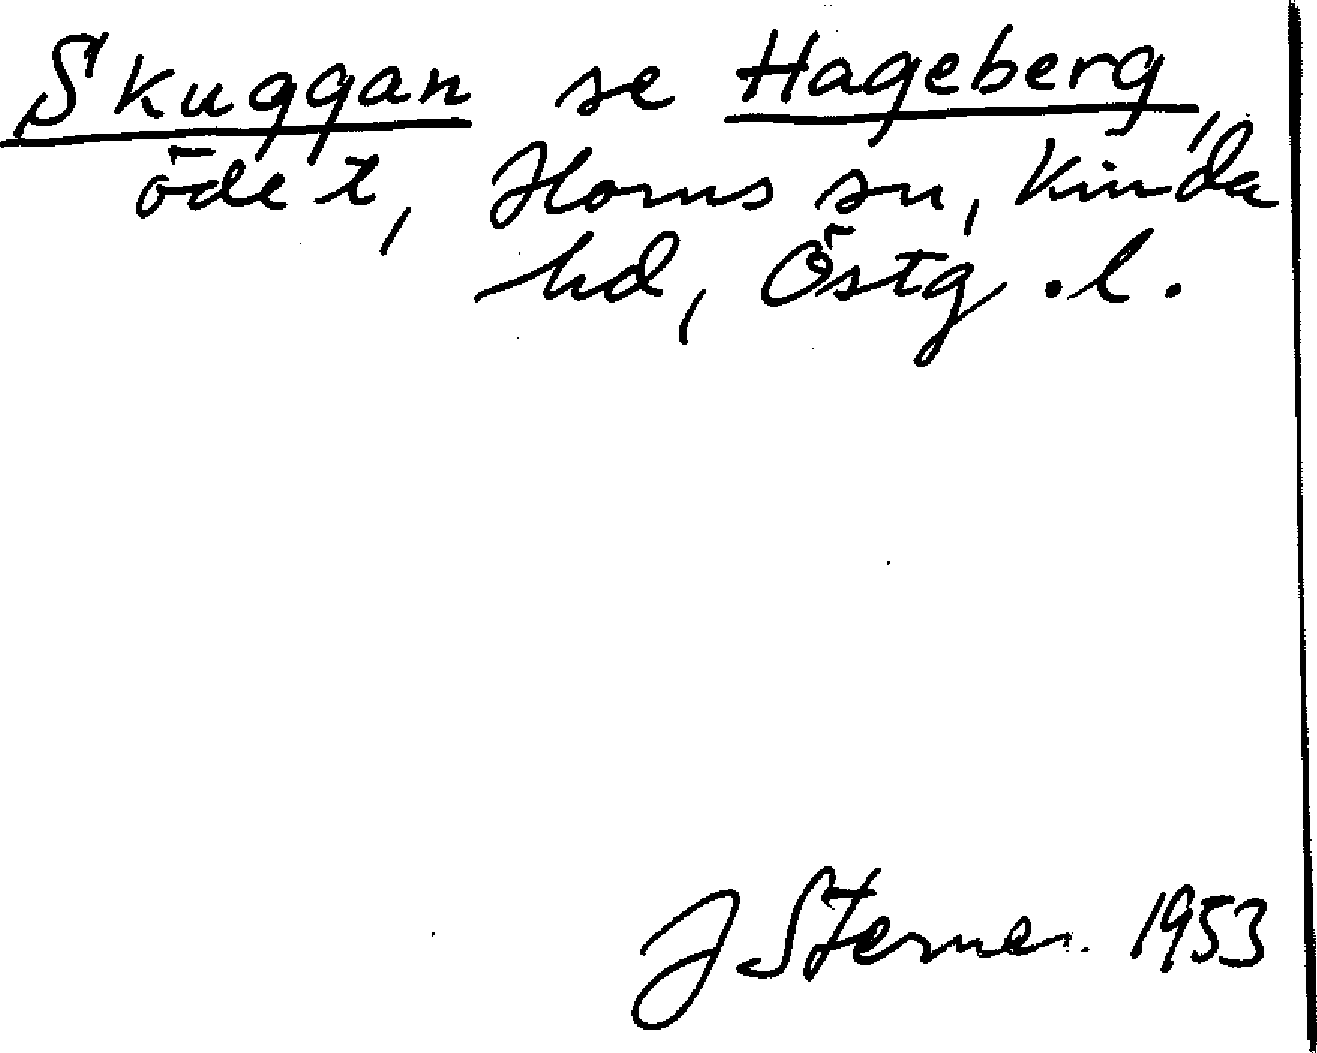 Skuggan se Hageberg,
öde t, Horns sn, Kinda
hd, Östg.l.
J Sterner. 1953